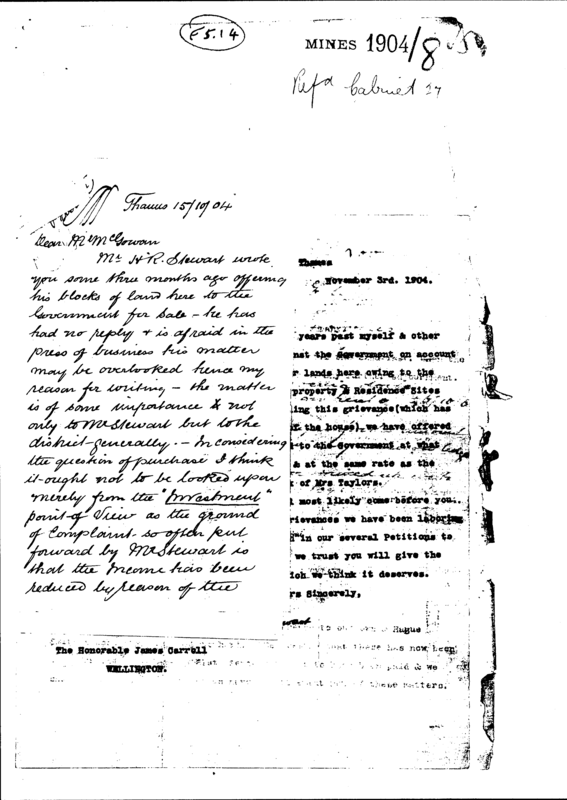 F5.14
MINES 1904/8
Refd Cabinet 27
Thames 15/10/04
Dear Mr McGowan
Mr H R. Stewart wrote
you some three months ago offering
his blocks of land here to the
Government for Sale - he has
had no reply & is afraid in the
press of business his matter
may be overlooked hence my
reason for writing - the matter
is of some importance & not
only to Mr Stewart but to the
district generally. - In considering
the question of purchase I think
it ought not to be looked upon
merely from the "Investment"
point of View as the ground
of Complaint so often put
forward by Mr Stewart is
that the Income has been
reduced by reason of the
Thames
November 3rd. 1904.
years past myself & other
nst the Government on account
r lands here owing to the
property & Residence Sites
ing this grievance(which has
f the house), we have offered
to the Government at what
& at the same rate as the
of Mrs Taylors.
most likely come before you.
rievances we have been laboring
in our several Petitions to
we trust you will give the
ich we think it deserves.
rs Sincerely,
The Honorable James Carroll
WELLINGTON.
to our Hague
that there has now been
paid & we
these matters.